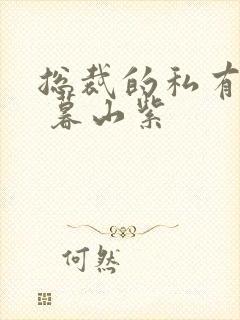 总裁的私有
暮山紫
何然